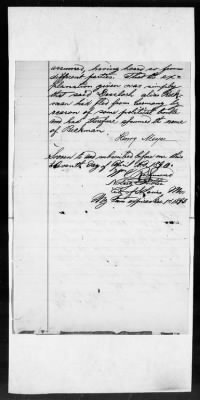 answered, having heard so from
different parties. That the ex-
planation given was simply
that said Gerlach alias Beck-
man had fled from Germany by
reason of some political trouble
and had therefore assumed the name
of Beckman.
Henry Meyer
Sworn to and subscribed before me this
day of April
Notary Public
City of St Louis, Mo
My term expires